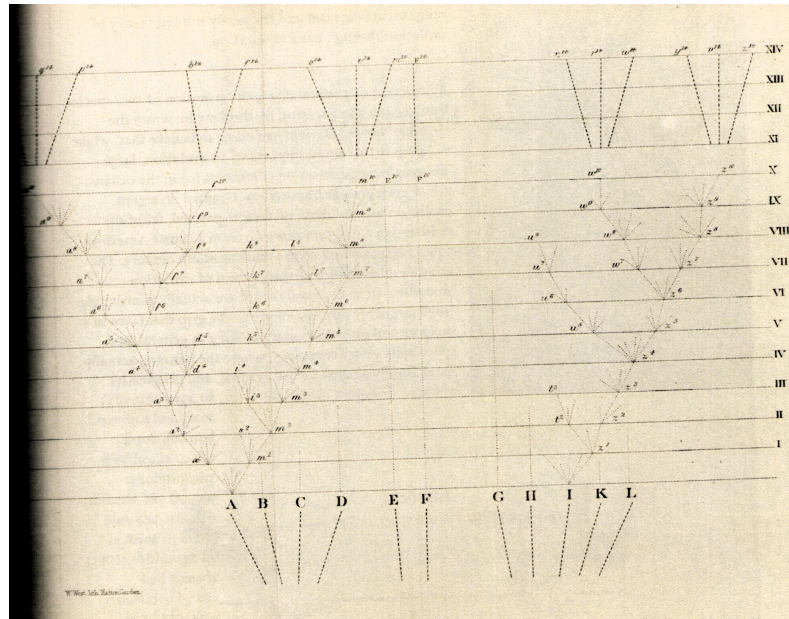 q¹⁴ p¹⁴ b¹⁴ f¹⁴ o¹⁴ e¹⁴ m¹⁴ F¹⁴ n¹⁴ r¹⁴ w¹⁴ y¹⁴ v¹⁴ z¹⁴ XIV
XIII
XII
XI
f¹⁰ m¹⁰ E¹⁰ F¹⁰ w¹⁰ z¹⁰ X
a⁹ f⁹ m⁹ w⁹ z⁹ IX
a⁸ f⁸ k⁸ l⁸ m⁸ u⁸ w⁸ z⁸ VIII
a⁷ f⁷ k⁷ l⁷ m⁷ u⁷ w⁷ z⁷ VII
a⁶ f⁶ k⁶ m⁶ u⁶ z⁶ VI
a⁵ d⁵ k⁵ m⁵ u⁵ z⁵ V
a⁴ d⁴ i⁴ m⁴ z⁴ IV
a³ i³ m³ t³ z³ III
a² s² m² t² z² II
a¹ m¹ z¹ I
A B C D E F G H I K L
W. West, lith. Hatton Garden